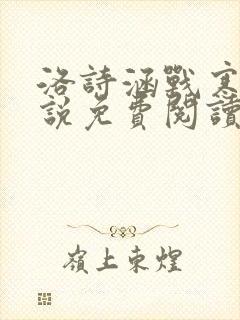 洛詩涵戰寒
說免費閱讀
嶺上東煌